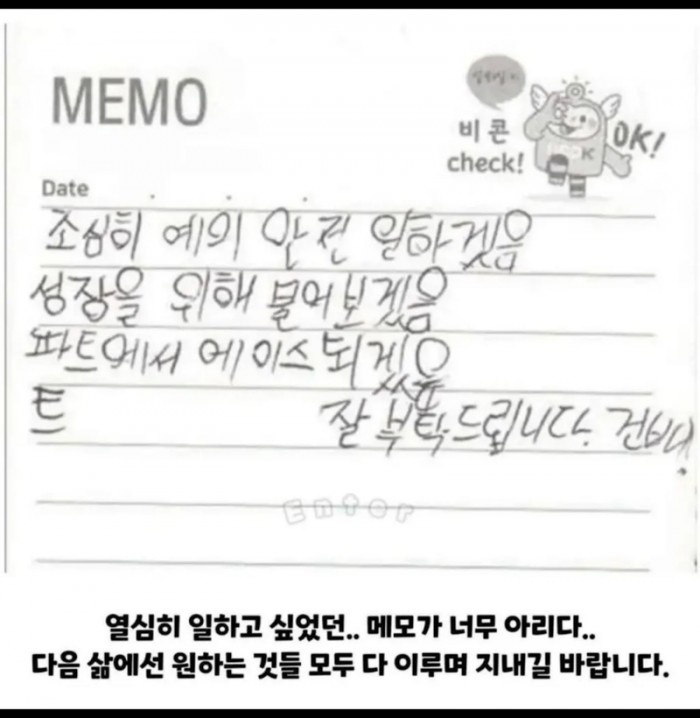 MEMO
비콘
check!
OK!
Date
조심히 예의 안전 일하겠음
성장을 위해 물어보겠음
파트에서 에이스되겠음
트 잘 부탁드립니다. 건배
Enter
열심히 일하고 싶었던.. 메모가 너무 아리다..
다음 삶에선 원하는 것들 모두 다 이루며 지내길 바랍니다.